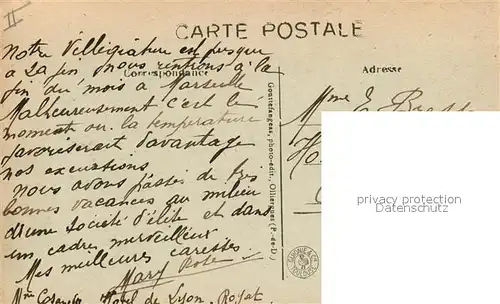 II
CARTE POSTALE
Correspondance
Adresse
Notre Villégiature est presque
à la fin, nous rentrons à la
fin du mois à Marseille
Malheureusement c'est le
moment où la température
favoriserait davantage
nos excursions
nous avons passés de très
bonnes vacances au milieu
d'une Société d'élite et dans
un cadre merveilleux
Mes meilleures caresses
Mary Rose
Mme
Hôtel de Lyon, Royat
Gouttefangeas, photo-édit., Olliergues (P.-de-D.)
Mme E.
privacy protection
www.ansichtskarten-center.de